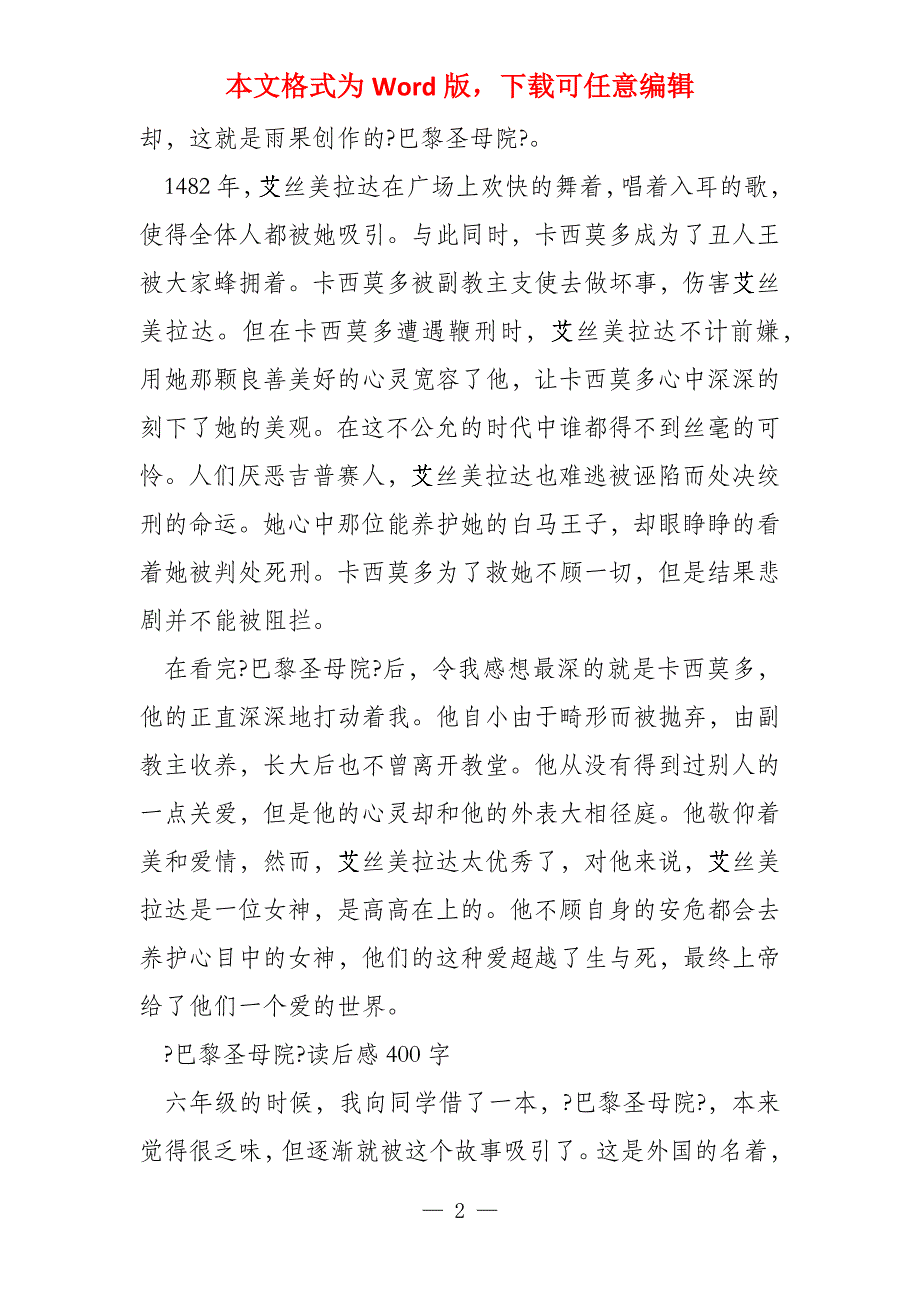 本文格式为 Word 版，下载可任意编辑
却，这就是雨果创作的?巴黎圣母院?。
1482 年，艾丝美拉达在广场上欢快的舞着，唱着入耳的歌，
使得全体人都被她吸引。与此同时，卡西莫多成为了丑人王
被大家蜂拥着。卡西莫多被副教主支使去做坏事，伤害艾丝
美拉达。但在卡西莫多遭遇鞭刑时，艾丝美拉达不计前嫌，
用她那颗良善美好的心灵宽容了他，让卡西莫多心中深深的
刻下了她的美观。在这不公允的时代中谁都得不到丝毫的可
怜。人们厌恶吉普赛人，艾丝美拉达也难逃被诬陷而处决绞
刑的命运。她心中那位能养护她的白马王子，却眼睁睁的看
着她被判处死刑。卡西莫多为了救她不顾一切，但是结果悲
剧并不能被阻拦。
在看完?巴黎圣母院?后，令我感想最深的就是卡西莫多，
他的正直深深地打动着我。他自小由于畸形而被抛弃，由副
教主收养，长大后也不曾离开教堂。他从没有得到过别人的
一点关爱，但是他的心灵却和他的外表大相径庭。他敬仰着
美和爱情，然而，艾丝美拉达太优秀了，对他来说，艾丝美
拉达是一位女神，是高高在上的。他不顾自身的安危都会去
养护心目中的女神，他们的这种爱超越了生与死，最终上帝
给了他们一个爱的世界。
?巴黎圣母院?读后感 400 字
六年级的时候，我向同学借了一本，?巴黎圣母院?，本来
觉得很乏味，但逐渐就被这个故事吸引了。这是外国的名着，
— 2 —